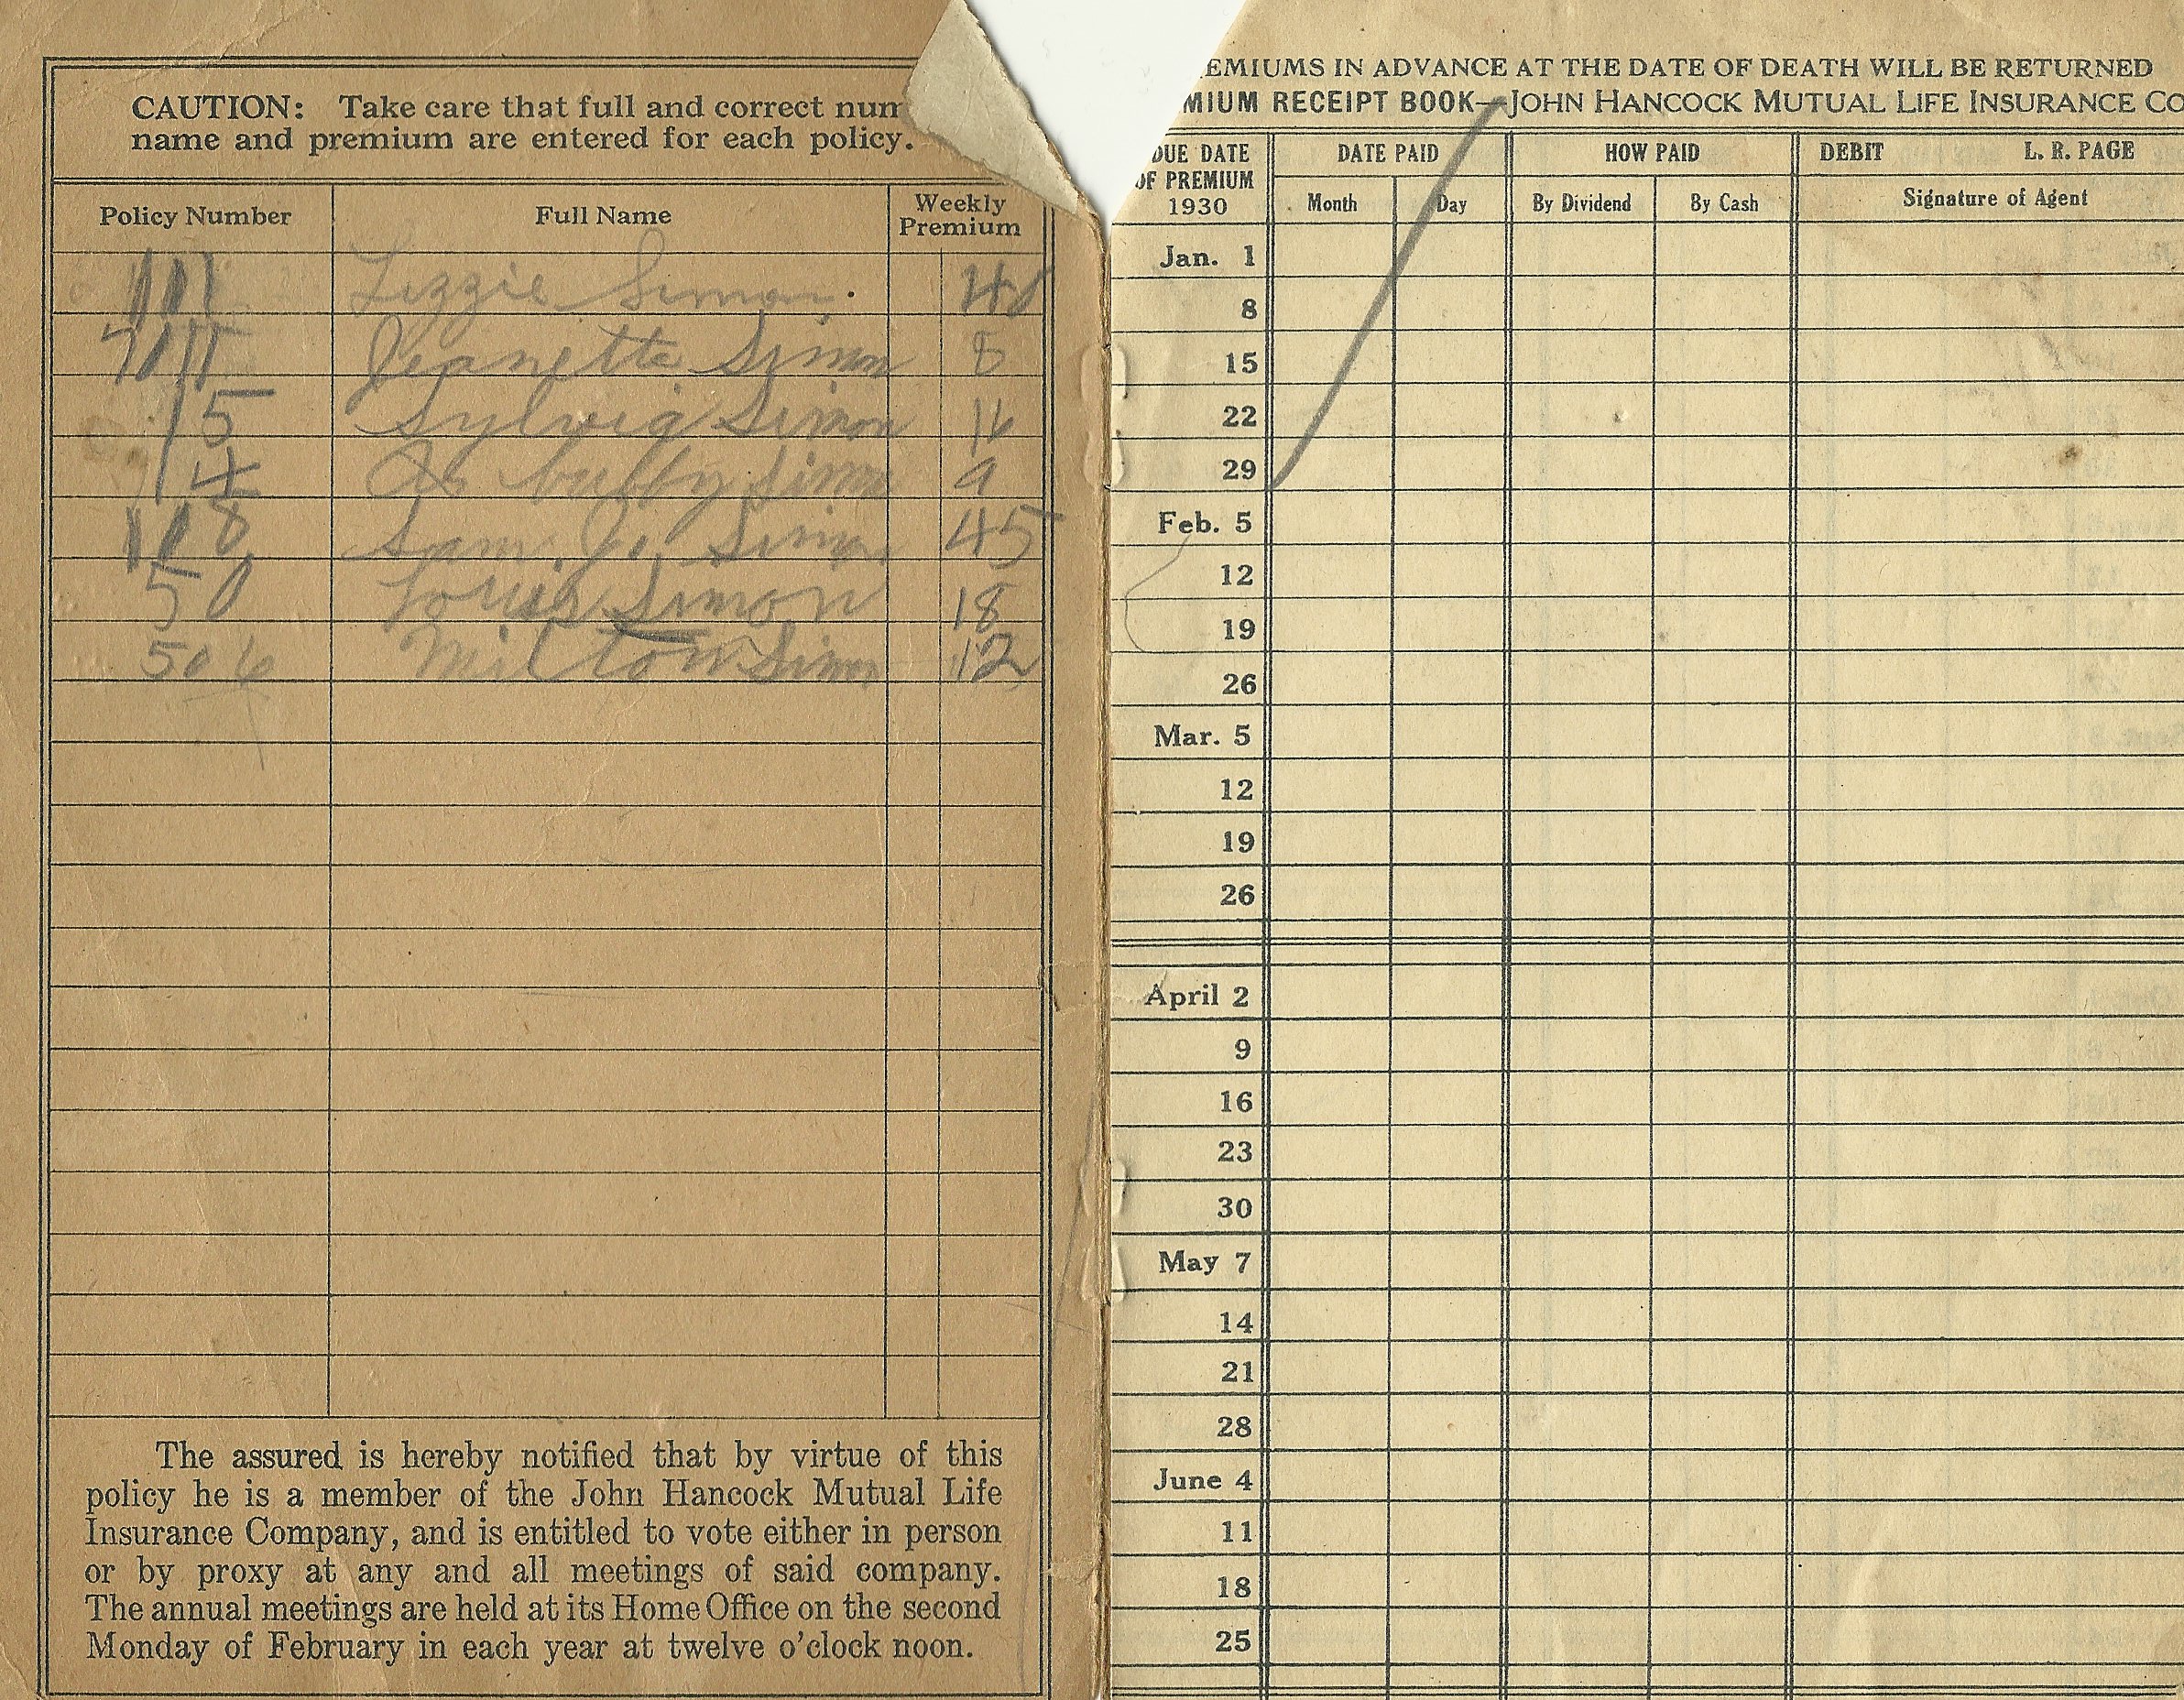 CAUTION: Take care that full and correct num
name and premium are entered for each policy.
Policy Number Full Name Weekly Premium
111 Lizzie Simon.
7111 Jeanette Simon 8
15 Sylvia Simon
14 Simon 9
118 Sam. J. Simon 45
50 Louis Simon 18
506 Milton Simon 12
The assured is hereby notified that by virtue of this
policy he is a member of the John Hancock Mutual Life
Insurance Company, and is entitled to vote either in person
or by proxy at any and all meetings of said company.
The annual meetings are held at its Home Office on the second
Monday of February in each year at twelve o'clock noon.
EMIUMS IN ADVANCE AT THE DATE OF DEATH WILL BE RETURNED
MIUM RECEIPT BOOK—JOHN HANCOCK MUTUAL LIFE INSURANCE CO
DUE DATE OF PREMIUM 1930 DATE PAID HOW PAID DEBIT L. R. PAGE
Month Day By Dividend By Cash Signature of Agent
Jan. 1
8
15
22
29
Feb. 5
12
19
26
Mar. 5
12
19
26
April 2
9
16
23
30
May 7
14
21
28
June 4
11
18
25